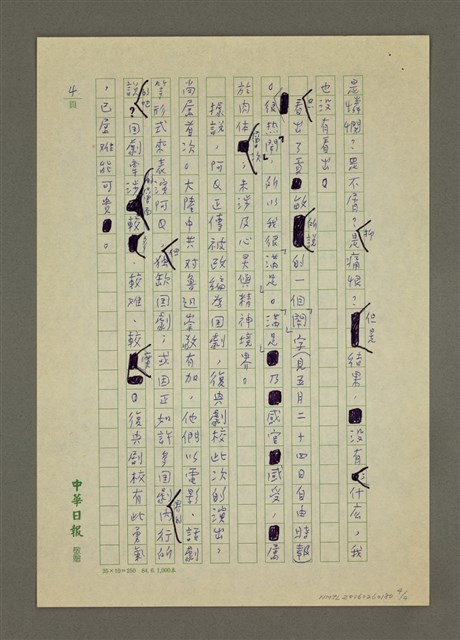 是憐憫?是不屑?抑是痛恨?但是結果,沒有什麼,我
也沒有看出。
只看出了貢敏所說的一個「鬧」字(見五月二十四日自由時報)
。後熱鬧,所以我很「滿足」。「滿足」乃感官感受,屬
於肉体層次,未涉及心灵與精神境界。
據說,阿Q正傳被改編為囯劇,復興劇校此次的演出,
尚屬首次。大陸中共對魯迅崇敬有加,他們以電影、話劇
等形式來表演阿Q,但獨缺囯劇;或因正如許多囯劇界內行所
說的吧?囯劇牽涉較多、較难、較廣。復興劇校有此勇氣
,已屬难能可貴。
4
頁
中華日報
稿箋
25×10=250 84.6.1,000本
NMTL20160260180 4/6